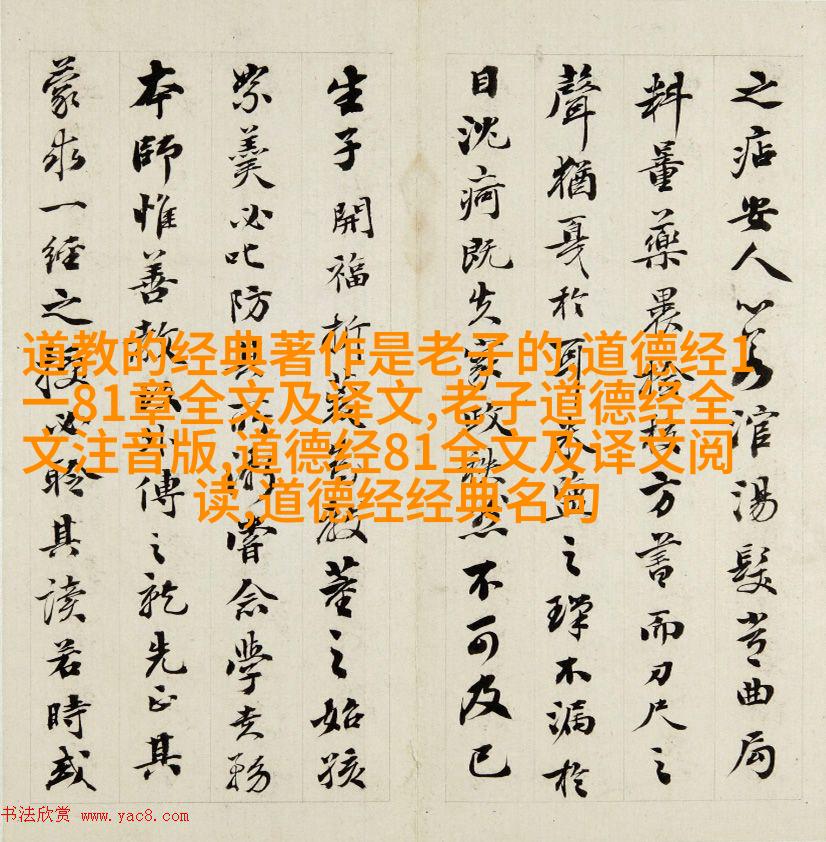 之痁安人湯髮曲局
料量藥裹檢方書而刀尺之
聲猶戛於耳米鹽之瑣不漏於
目沈疴既失家政秩然不可及已
生子開福之始孩
絮羹必叱防其嘗念學貴務
本師惟善傳之就先正其
蒙求一經之授必聆其讀若時或
道教的经典著作是老子的,道德经1
一81章全文及译文,老子道德经全
文注音版,道德经81全文及译文阅
读,道德经经典名句
书法欣赏 www.yac8.com